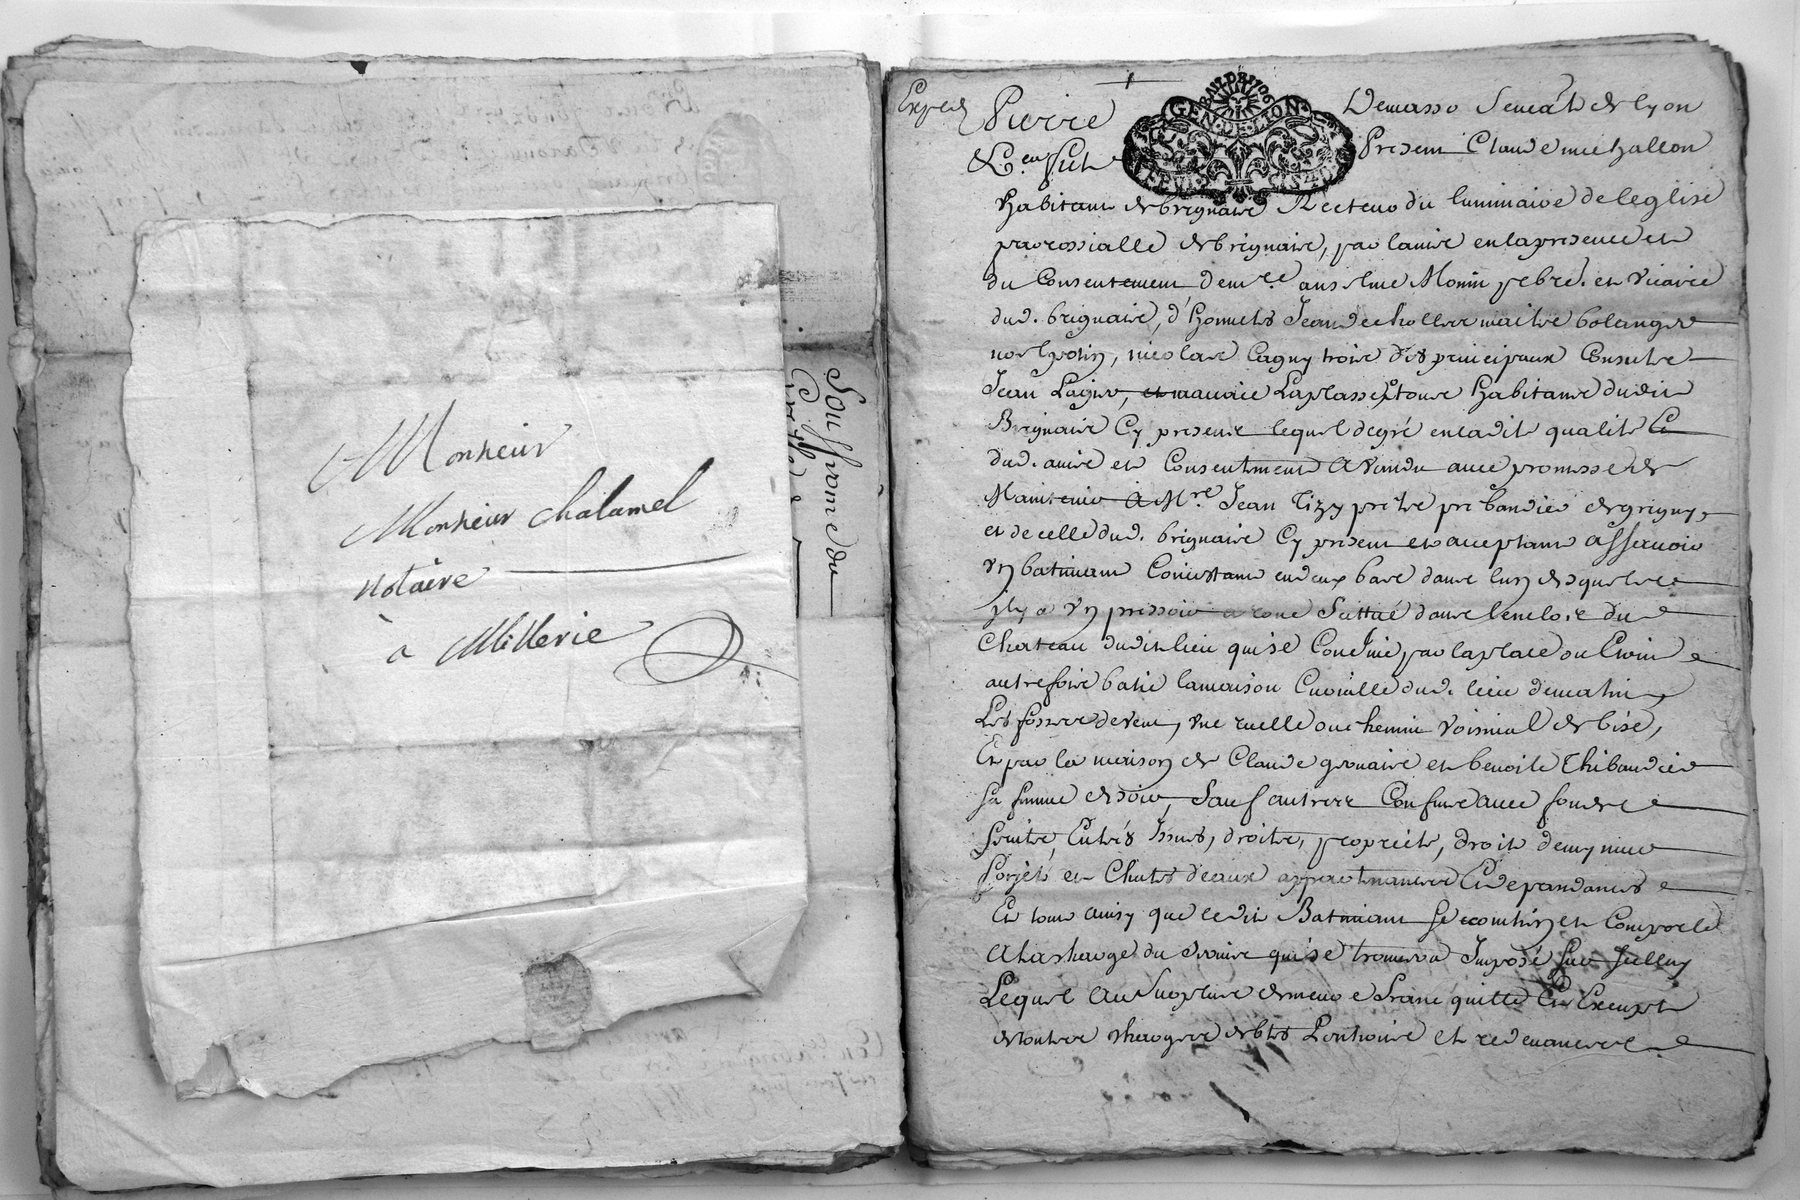 A Monsieur
Monsieur Chalamel
notaire
à Millerie
Sousprome du
Exped
Pierre
GEN·DE·LION
Demasso Senéal de Lyon
&c.
Present Claude michallon
Habitant de brignaire Recteur du luminaire de leglise
parrossialle de brignaire, par lauire en la presence et
du Consentement de mre anselme Monin pebre. et vicaire
dud. brignaire, d'honnetes Jean decholler maitre bolanger
nicolas Cagny trois des principaux Consulte
Jean Lagier, Laplasse tous Habitans dudit
Brignaire Cy presens lequel de gré en ladite qualite
dud. auire et Consentement A vandu auec promesse de
Maintenir A Mre Jean Tizy pretre prebandier de grigny
et de celle dud. brignaire Cy present et acceptant assauoir
Vn batimant Concistant en deux bas dans lun desquels
jl y a Vn pressoir a roue Sittué dans lenclos du
Chateau dudit lieu qui se Confine par la place ou Etoit
autrefois batie la maison Curialle dud. lieu de matin
Les fosses de vent, vne ruelle ou chemin voisinal de bise,
Et par la maison de Claude gronaire et benoite Thibaudier
sa femme de soir, Sauf autres Confins auec fonds
Entrés Issues, droits, proprietes, droit demynue
forjets et Chutes deaux appartenances Et depandances
Et tout ainsy que ledit Batimant Se contient et Comporte
A la charge du seruis qui se trouuera Imposé sur Icelluy
Lequel Au Surplus demeure franc quitte Et Exempt
de toutes charges debtes Pentions et redeuances